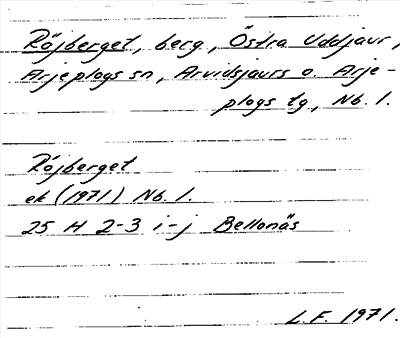 Röjberget, berg, Östra Uddjaur,
Arjeplogs sn, Arvidsjaurs o. Arje-
plogs tg., Nb. l.
Röjberget
ek (1971) Nb. l.
25 H 2-3 i-j Bellonäs
L.F. 1971.